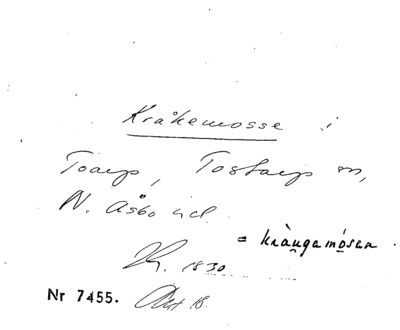 Kråkemosse i
Toarp, Tostarp sn,
N. Åsbo hd.
= kràngamósan.
K. 1830
Nr 7455. Avt 18.